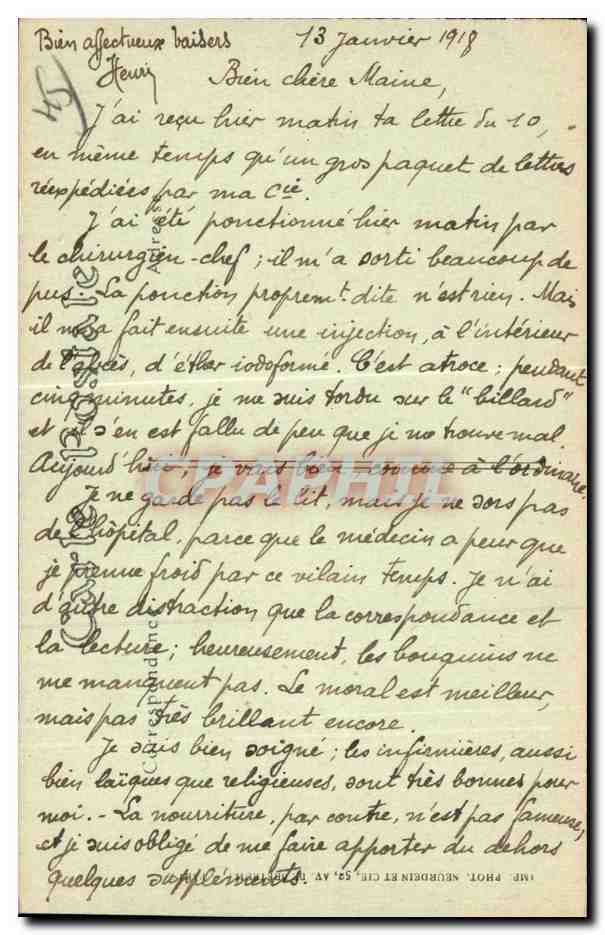 Bien affectueux baisers
Henri
13 Janvier 1918
54
Bien chère Maine,
J'ai reçu hier matin ta lettre du 10,
en même temps qu'un gros paquet de lettres
réexpédiées par ma Cie.
J'ai été ponctionné hier matin par
le chirurgien-chef ; il m'a sorti beaucoup de
pus. La ponction propremt. dite n'est rien. Mais
il m'a fait ensuite une injection, à l'intérieur
de l'abcès, d'éther iodoformé. C'est atroce ; pendant
cinq minutes, je me suis tordu sur le "billard"
et il s'en est fallu de peu que je me trouve mal.
Aujourd'hui, je vais bien comme à l'ordinaire.
Je ne garde pas le lit, mais je ne sors pas
de l'hôpital, parce que le médecin a peur que
je prenne froid par ce vilain temps. Je n'ai
d'autre distraction que la correspondance et
la lecture ; heureusement, les bouquins ne
me manquent pas. Le moral est meilleur,
mais pas très brillant encore.
Je suis bien soigné ; les infirmières, aussi
bien laïques que religieuses, sont très bonnes pour
moi. - La nourriture, par contre, n'est pas fameuse,
et je suis obligé de me faire apporter du dehors
quelques suppléments.
Carte Postale
Correspondance
Adresse
IMP. PHOT. NEURDEIN ET CIE, 52, AV.
CPAPHIL